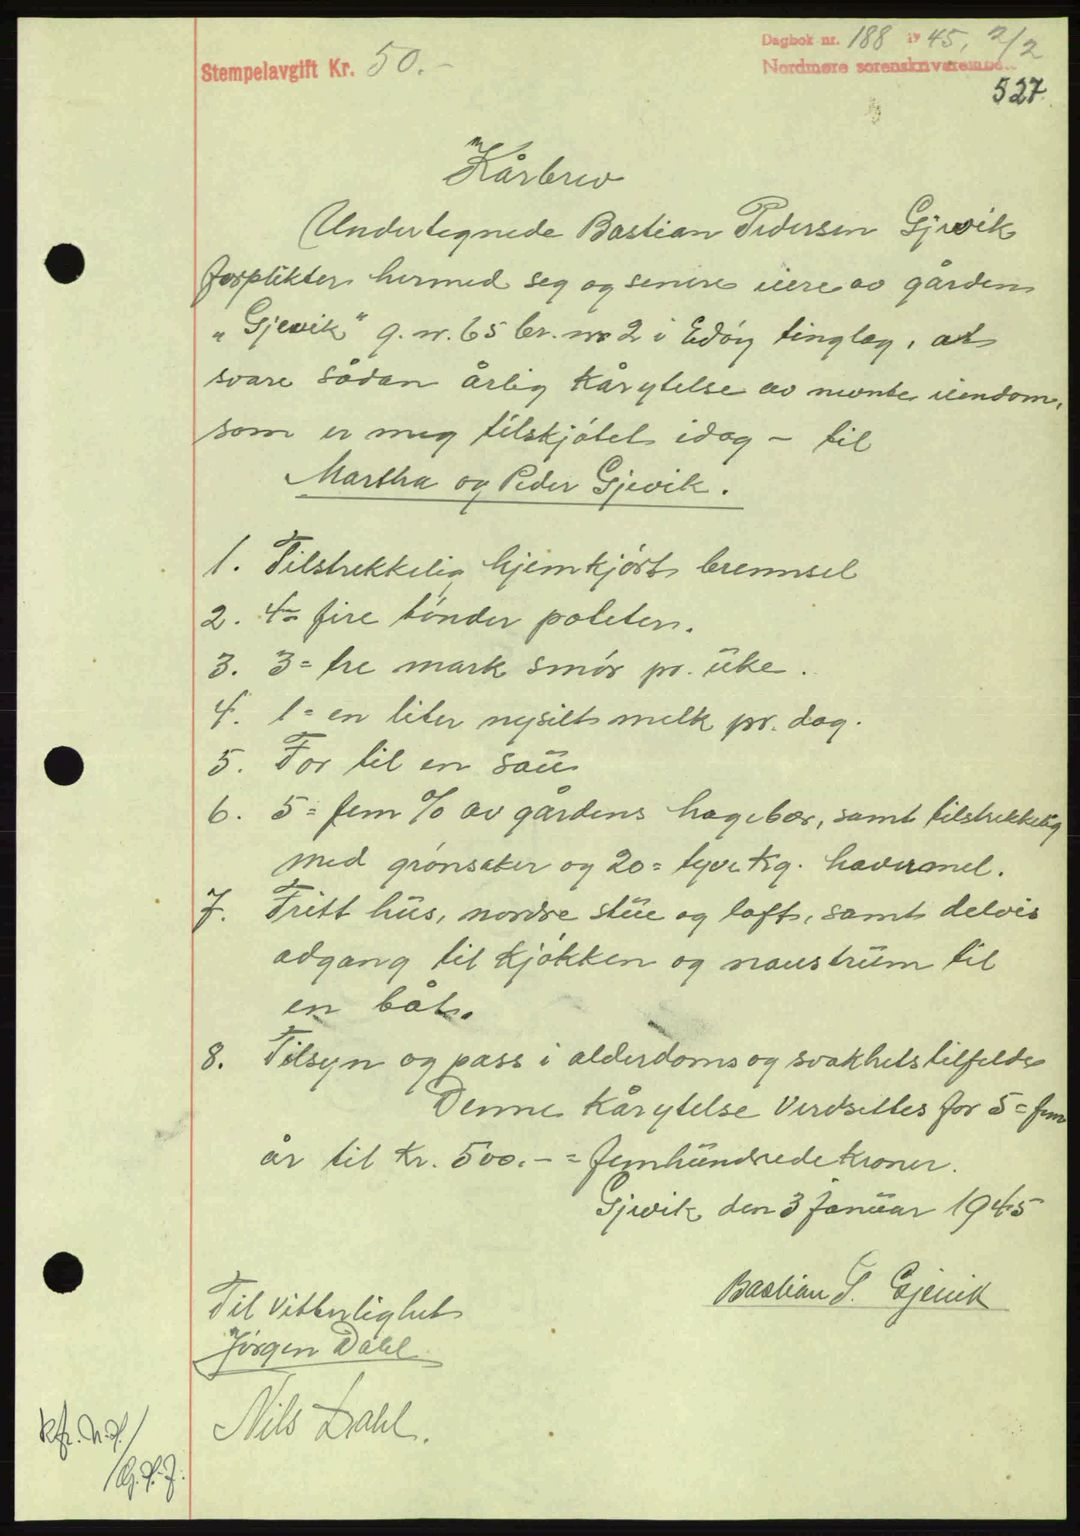 Stempelavgift Kr. 50.-
Dagbok nr. 188 19 45, 2/2
Nordmøre sorenskriverembe..
527
Kårbrev
Undertegnede Bastian Pedersen Gjevik
forplikter hermed seg og senere eiere av gården
"Gjevik" g.nr. 65 br.nr 2 i Edøy tinglag, at
svare sådan årlig kårytelse av nevnte eiendom,
som er meg tilskjøtet idag - til
Martha og Peder Gjevik.
1. Tilstrekkelig hjemkjørt brennsel
2. 4= fire tønder poteter.
3. 3= tre mark smør pr. uke.
4. 1= en liter nysilt melk pr. dag.
5. For til en sau
6. 5= fem % av gårdens hagebær, samt tilstrekkelig
med grønsaker og 20= tyve kg. havremel.
7. Fritt hus, nordre stue og loft, samt delvis
adgang til kjøkken og naustrum til
en båt.
8. Tilsyn og pass i alderdoms og svakhetstilfelde
Denne kårytelse verdsettes for 5= fem
år til kr. 500.- = femhundrede kroner.
Gjevik den 3 januar 1945
Bastian P. Gjevik
Til vitterlighet
Jørgen Dahl
Nils Dahl.